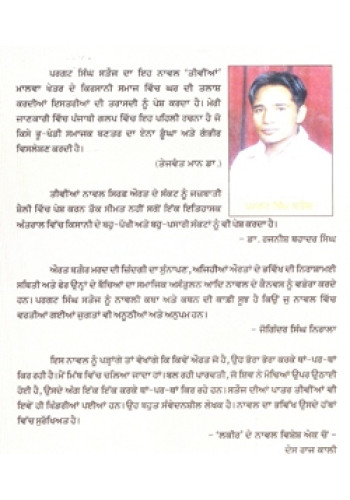 ਪਰਗਟ ਸਿੰਘ ਸਤੌਜ ਦਾ ਇਹ ਨਾਵਲ 'ਤੀਵੀਂਆਂ'
ਮਾਲਵਾ ਖੇਤਰ ਦੇ ਕਿਰਸਾਨੀ ਸਮਾਜ ਵਿੱਚ ਘਰ ਦੀ ਤਲਾਸ਼
ਕਰਦੀਆਂ ਇਸਤਰੀਆਂ ਦੀ ਤਰਾਸਦੀ ਨੂੰ ਪੇਸ਼ ਕਰਦਾ ਹੈ। ਮੇਰੀ
ਜਾਣਕਾਰੀ ਵਿੱਚ ਪੰਜਾਬੀ ਗਲਪ ਵਿੱਚ ਇਹ ਪਹਿਲੀ ਰਚਨਾ ਹੈ ਜੋ
ਕਿਸੇ ਭੂ-ਖੰਡੀ ਸਮਾਜਕ ਬਣਤਰ ਦਾ ਏਨਾ ਡੂੰਘਾ ਅਤੇ ਗੰਭੀਰ
ਵਿਸਲੇਸ਼ਣ ਕਰਦੀ ਹੈ।
(ਤੇਜਵੰਤ ਮਾਨ ਡਾ.)
ਤੀਵੀਂਆਂ ਨਾਵਲ ਸਿਰਫ਼ ਔਰਤ ਦੇ ਸੰਕਟ ਨੂੰ ਜਜ਼ਬਾਤੀ
ਸ਼ੈਲੀ ਵਿੱਚ ਪੇਸ਼ ਕਰਨ ਤੱਕ ਸੀਮਤ ਨਹੀਂ ਸਗੋਂ ਇੱਕ ਇਤਿਹਾਸਕ
ਅੰਤਰਾਲ ਵਿੱਚ ਕਿਸਾਨੀ ਦੇ ਬਹੁ-ਪੱਖੀ ਅਤੇ ਬਹੁ-ਪਸਾਰੀ ਸੰਕਟਾਂ ਨੂੰ ਵੀ ਪੇਸ਼ ਕਰਦਾ ਹੈ।
- ਡਾ. ਰਜਨੀਸ਼ ਬਹਾਦਰ ਸਿੰਘ
ਔਰਤ ਬਗੈਰ ਮਰਦ ਦੀ ਜ਼ਿੰਦਗੀ ਦਾ ਸੁੰਨਾਪਣ, ਅਜਿਹੀਆਂ ਔਰਤਾਂ ਦੇ ਭਵਿੱਖ ਦੀ ਨਿਰਾਸ਼ਾਮਈ
ਸਥਿਤੀ ਅਤੇ ਫੇਰ ਉਨ੍ਹਾਂ ਦੇ ਬੱਚਿਆਂ ਦਾ ਸਮਾਜਿਕ ਅਸੰਤੁਲਨ ਆਦਿ ਨਾਵਲ ਦੇ ਕੈਨਵਸ ਨੂੰ ਵਡੇਰਾ ਕਰਦੇ
ਹਨ। ਪਰਗਟ ਸਿੰਘ ਸਤੌਜ ਨੂੰ ਨਾਵਲੀ ਕਥਾ ਅਤੇ ਕਥਨ ਦੀ ਕਾਫ਼ੀ ਸੂਝ ਹੈ ਕਿਉਂ ਜੁ ਨਾਵਲ ਵਿੱਚ
ਵਰਤੀਆਂ ਗਈਆਂ ਜੁਗਤਾਂ ਵੀ ਅਨੂਠੀਆਂ ਅਤੇ ਅਨੁਪਮ ਹਨ।
- ਜੋਗਿੰਦਰ ਸਿੰਘ ਨਿਰਾਲਾ
ਇਸ ਨਾਵਲ ਨੂੰ ਪੜ੍ਹਾਂਗੇ ਤਾਂ ਵੇਖਾਂਗੇ ਕਿ ਕਿਵੇਂ ਔਰਤ ਜੋ ਹੈ, ਉਹ ਭੋਰਾ ਭੋਰਾ ਕਰਕੇ ਥਾਂ-ਪਰ-ਥਾਂ
ਕਿਰ ਰਹੀ ਹੈ। ਮੈਂ ਮਿੱਥ ਵਿੱਚ ਚਲਿਆ ਜਾਂਦਾ ਹਾਂ। ਬਲ ਰਹੀ ਪਾਰਵਤੀ, ਜੋ ਸ਼ਿਵ ਨੇ ਮੋਢਿਆਂ ਉਪਰ ਉਠਾਈ
ਹੋਈ ਹੈ, ਉਸਦੇ ਅੰਗ ਇੱਕ ਇੱਕ ਕਰਕੇ ਥਾਂ-ਪਰ-ਥਾਂ ਕਿਰ ਰਹੇ ਹਨ। ਸਤੌਜ ਦੀਆਂ ਪਾਤਰ ਤੀਵੀਂਆਂ ਵੀ
ਇਵੇਂ ਹੀ ਖਿੰਡਰੀਆਂ ਪਈਆਂ ਹਨ। ਉਹ ਬਹੁਤ ਸੰਵੇਦਨਸ਼ੀਲ ਲੇਖਕ ਹੈ। ਨਾਵਲ ਦਾ ਭਵਿੱਖ ਉਸਦੇ ਹੱਥਾਂ
ਵਿੱਚ ਸੁਰੱਖਿਅਤ ਹੈ।
- 'ਲਕੀਰ' ਦੇ ਨਾਵਲ ਵਿਸ਼ੇਸ਼ ਅੰਕ ਚੋਂ -
ਦੇਸ ਰਾਜ ਕਾਲੀ